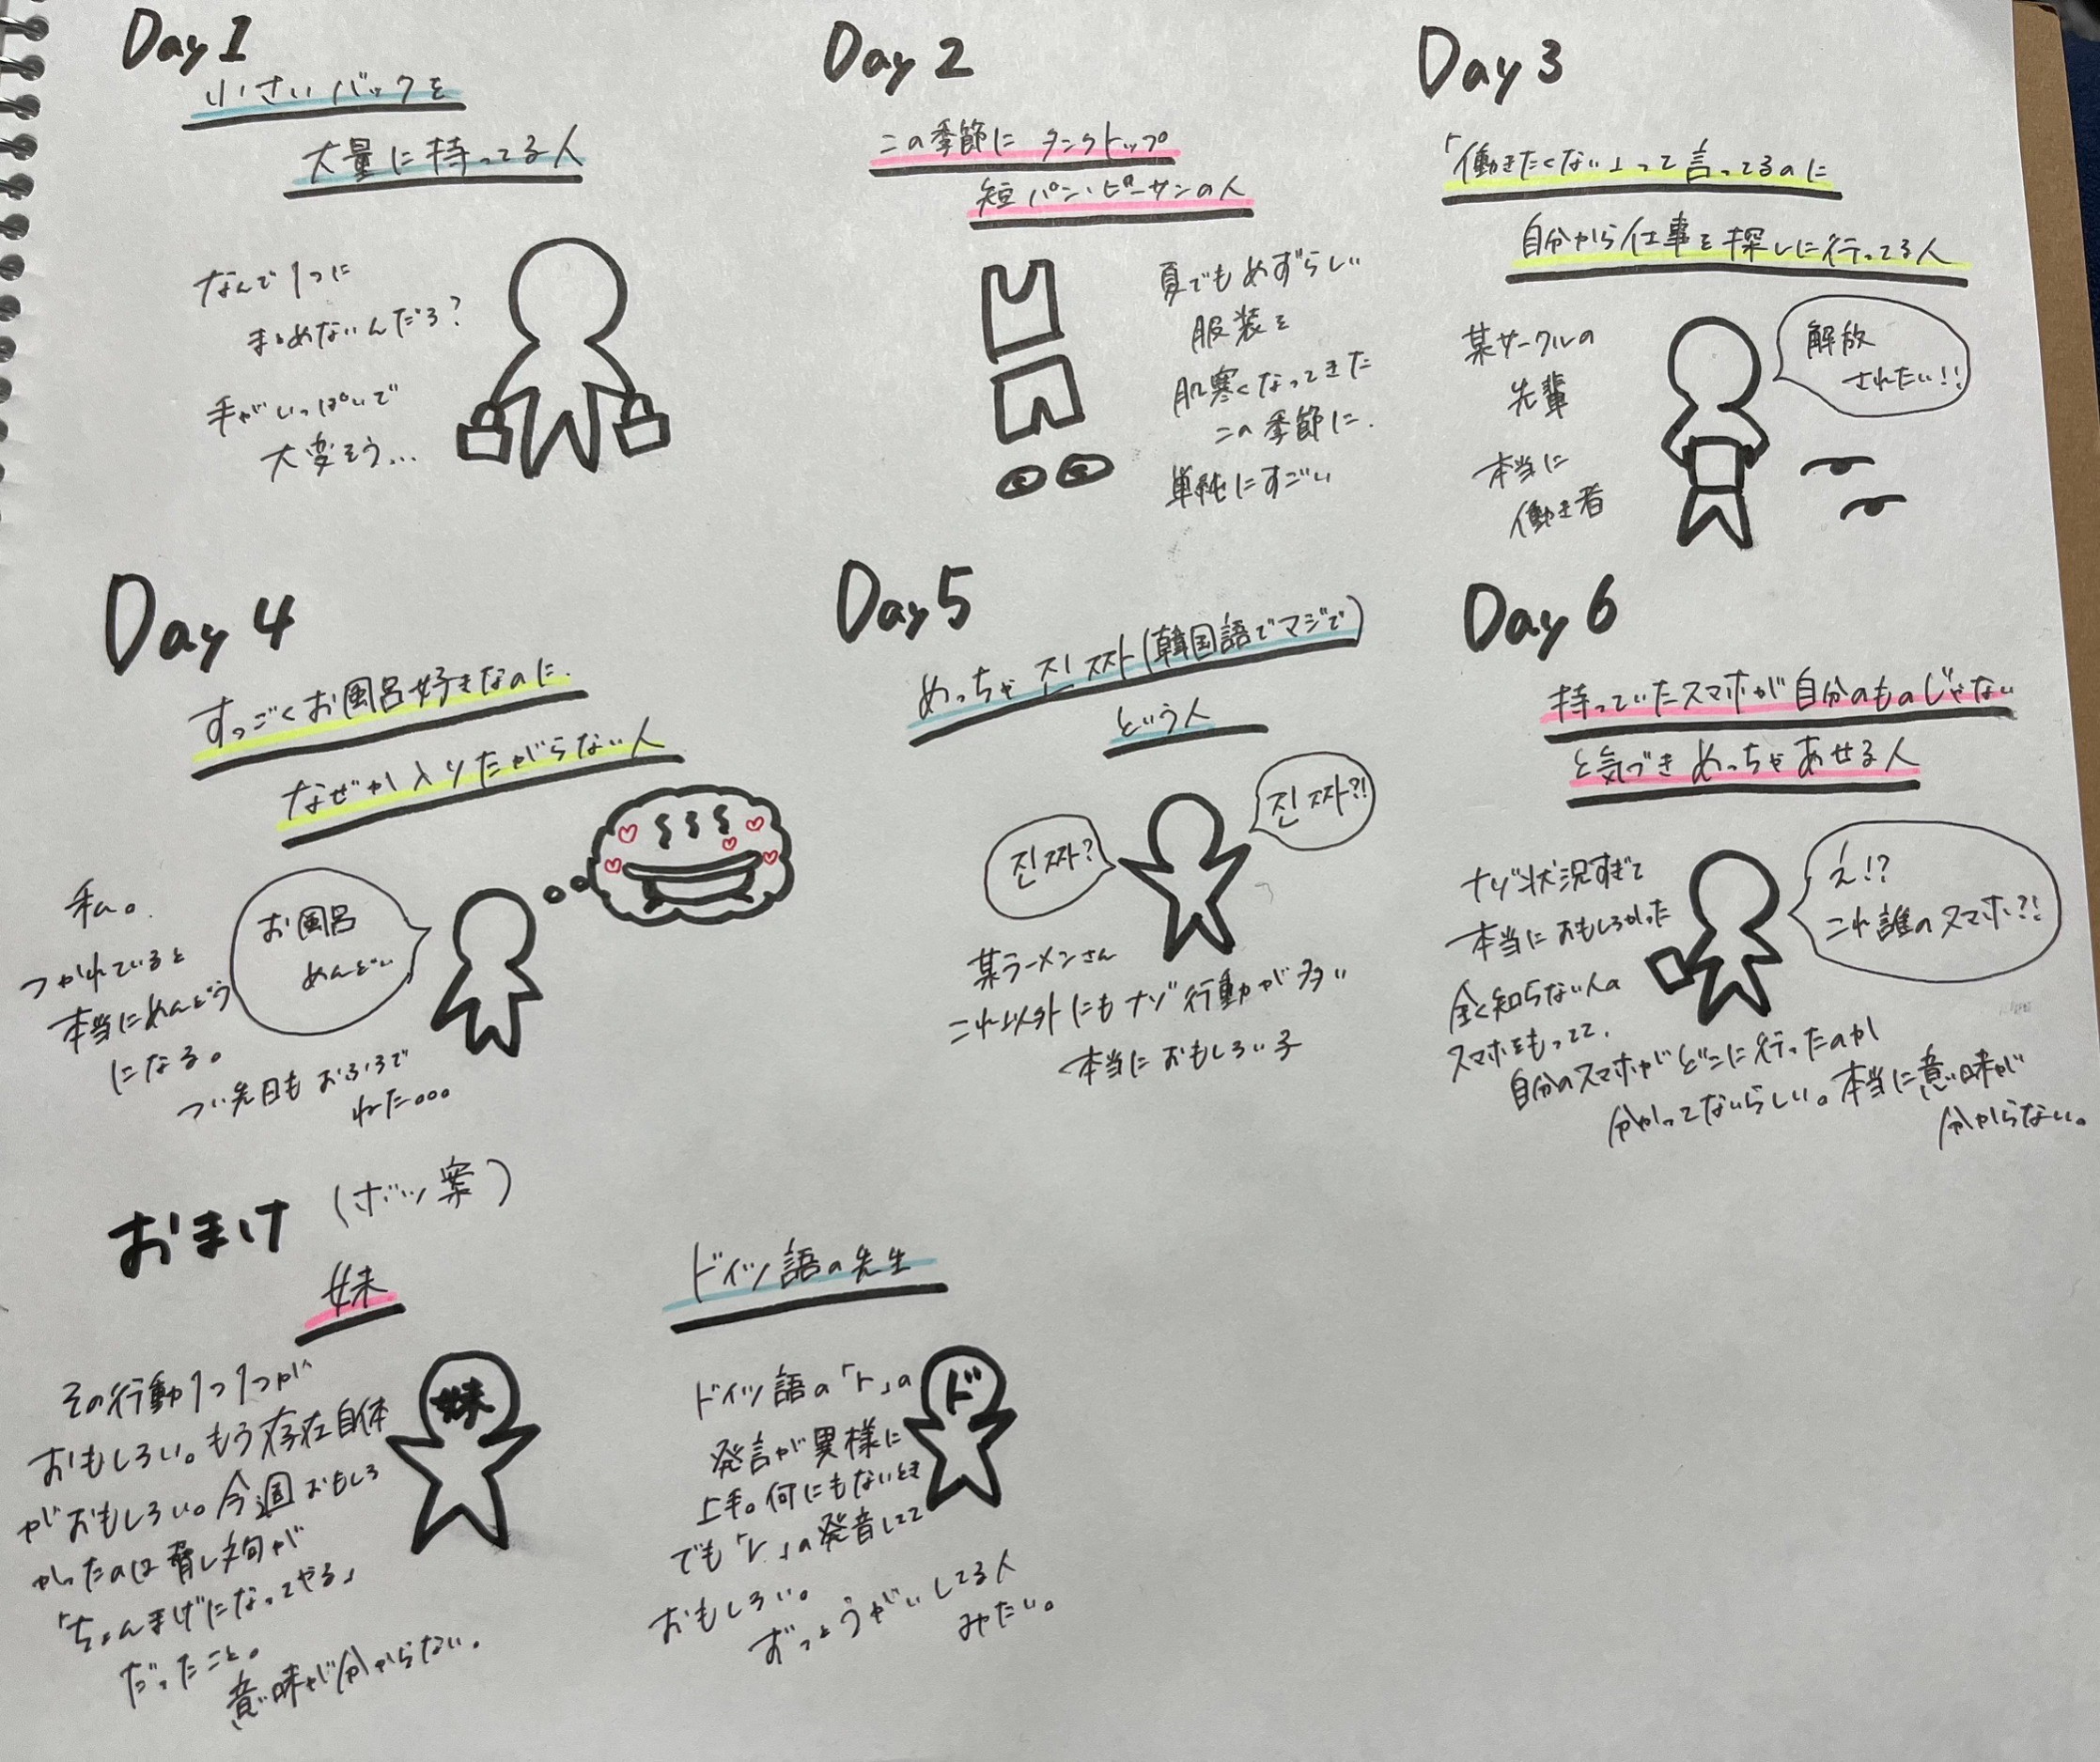 Day 1
小さいバックを
大量に持ってる人
なんで1つに
まとめないんだろ?
手がいっぱいで
大変そう...
Day 2
この季節にタンクトップ
短パン・ビーサンの人
夏でもめずらしい
服装を
肌寒くなってきた
この季節に.
単純にすごい
Day 3
「働きたくない」って言ってるのに
自分から仕事を探しに行ってる人
某サークルの
先輩
本当に
働き者
解放
されたい!!
Day 4
すっごくお風呂好きなのに.
なぜか入りたがらない人
私。
つかれていると
本当にめんどう
になる。
つい先日もおふろで
ねた。。。
お風呂
めんどい
Day 5
めっちゃ 진짜(韓国語でマジで)
という人
진짜?
진짜?!
某ラーメンさん
これ以外にもナゾ行動が多い
本当におもしろい子
Day 6
持っていたスマホが自分のものじゃない
と気づきめっちゃあせる人
ナゾ状況すぎて
本当におもしろかった
全く知らない人の
スマホをもってて.
自分のスマホがどこに行ったのか
分かってないらしい。本当に意味が
分からない。
え!?
これ誰のスマホ?!
おまけ (ボツ案)
妹
その行動1つ1つが
おもしろい。もう存在自体
がおもしろい。今週おもしろ
かったのは脅し文句が
「ちょんまげになってやる」
だったこと。
意味が分からない。
妹
ドイツ語の先生
ドイツ語の「r」の
発言が異様に
上手。何にもないとき
でも「r」の発音してて
おもしろい。
ずっとうがいしてる人
みたい。
ド